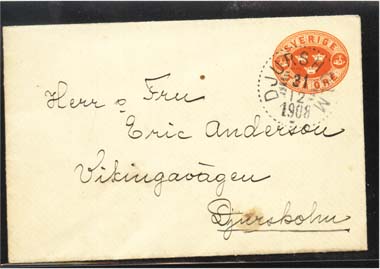 SVERIGE
ÖRE
31
12
1908
Herr o Fru
Eric Anderson
Vikingavägen
Djursholm